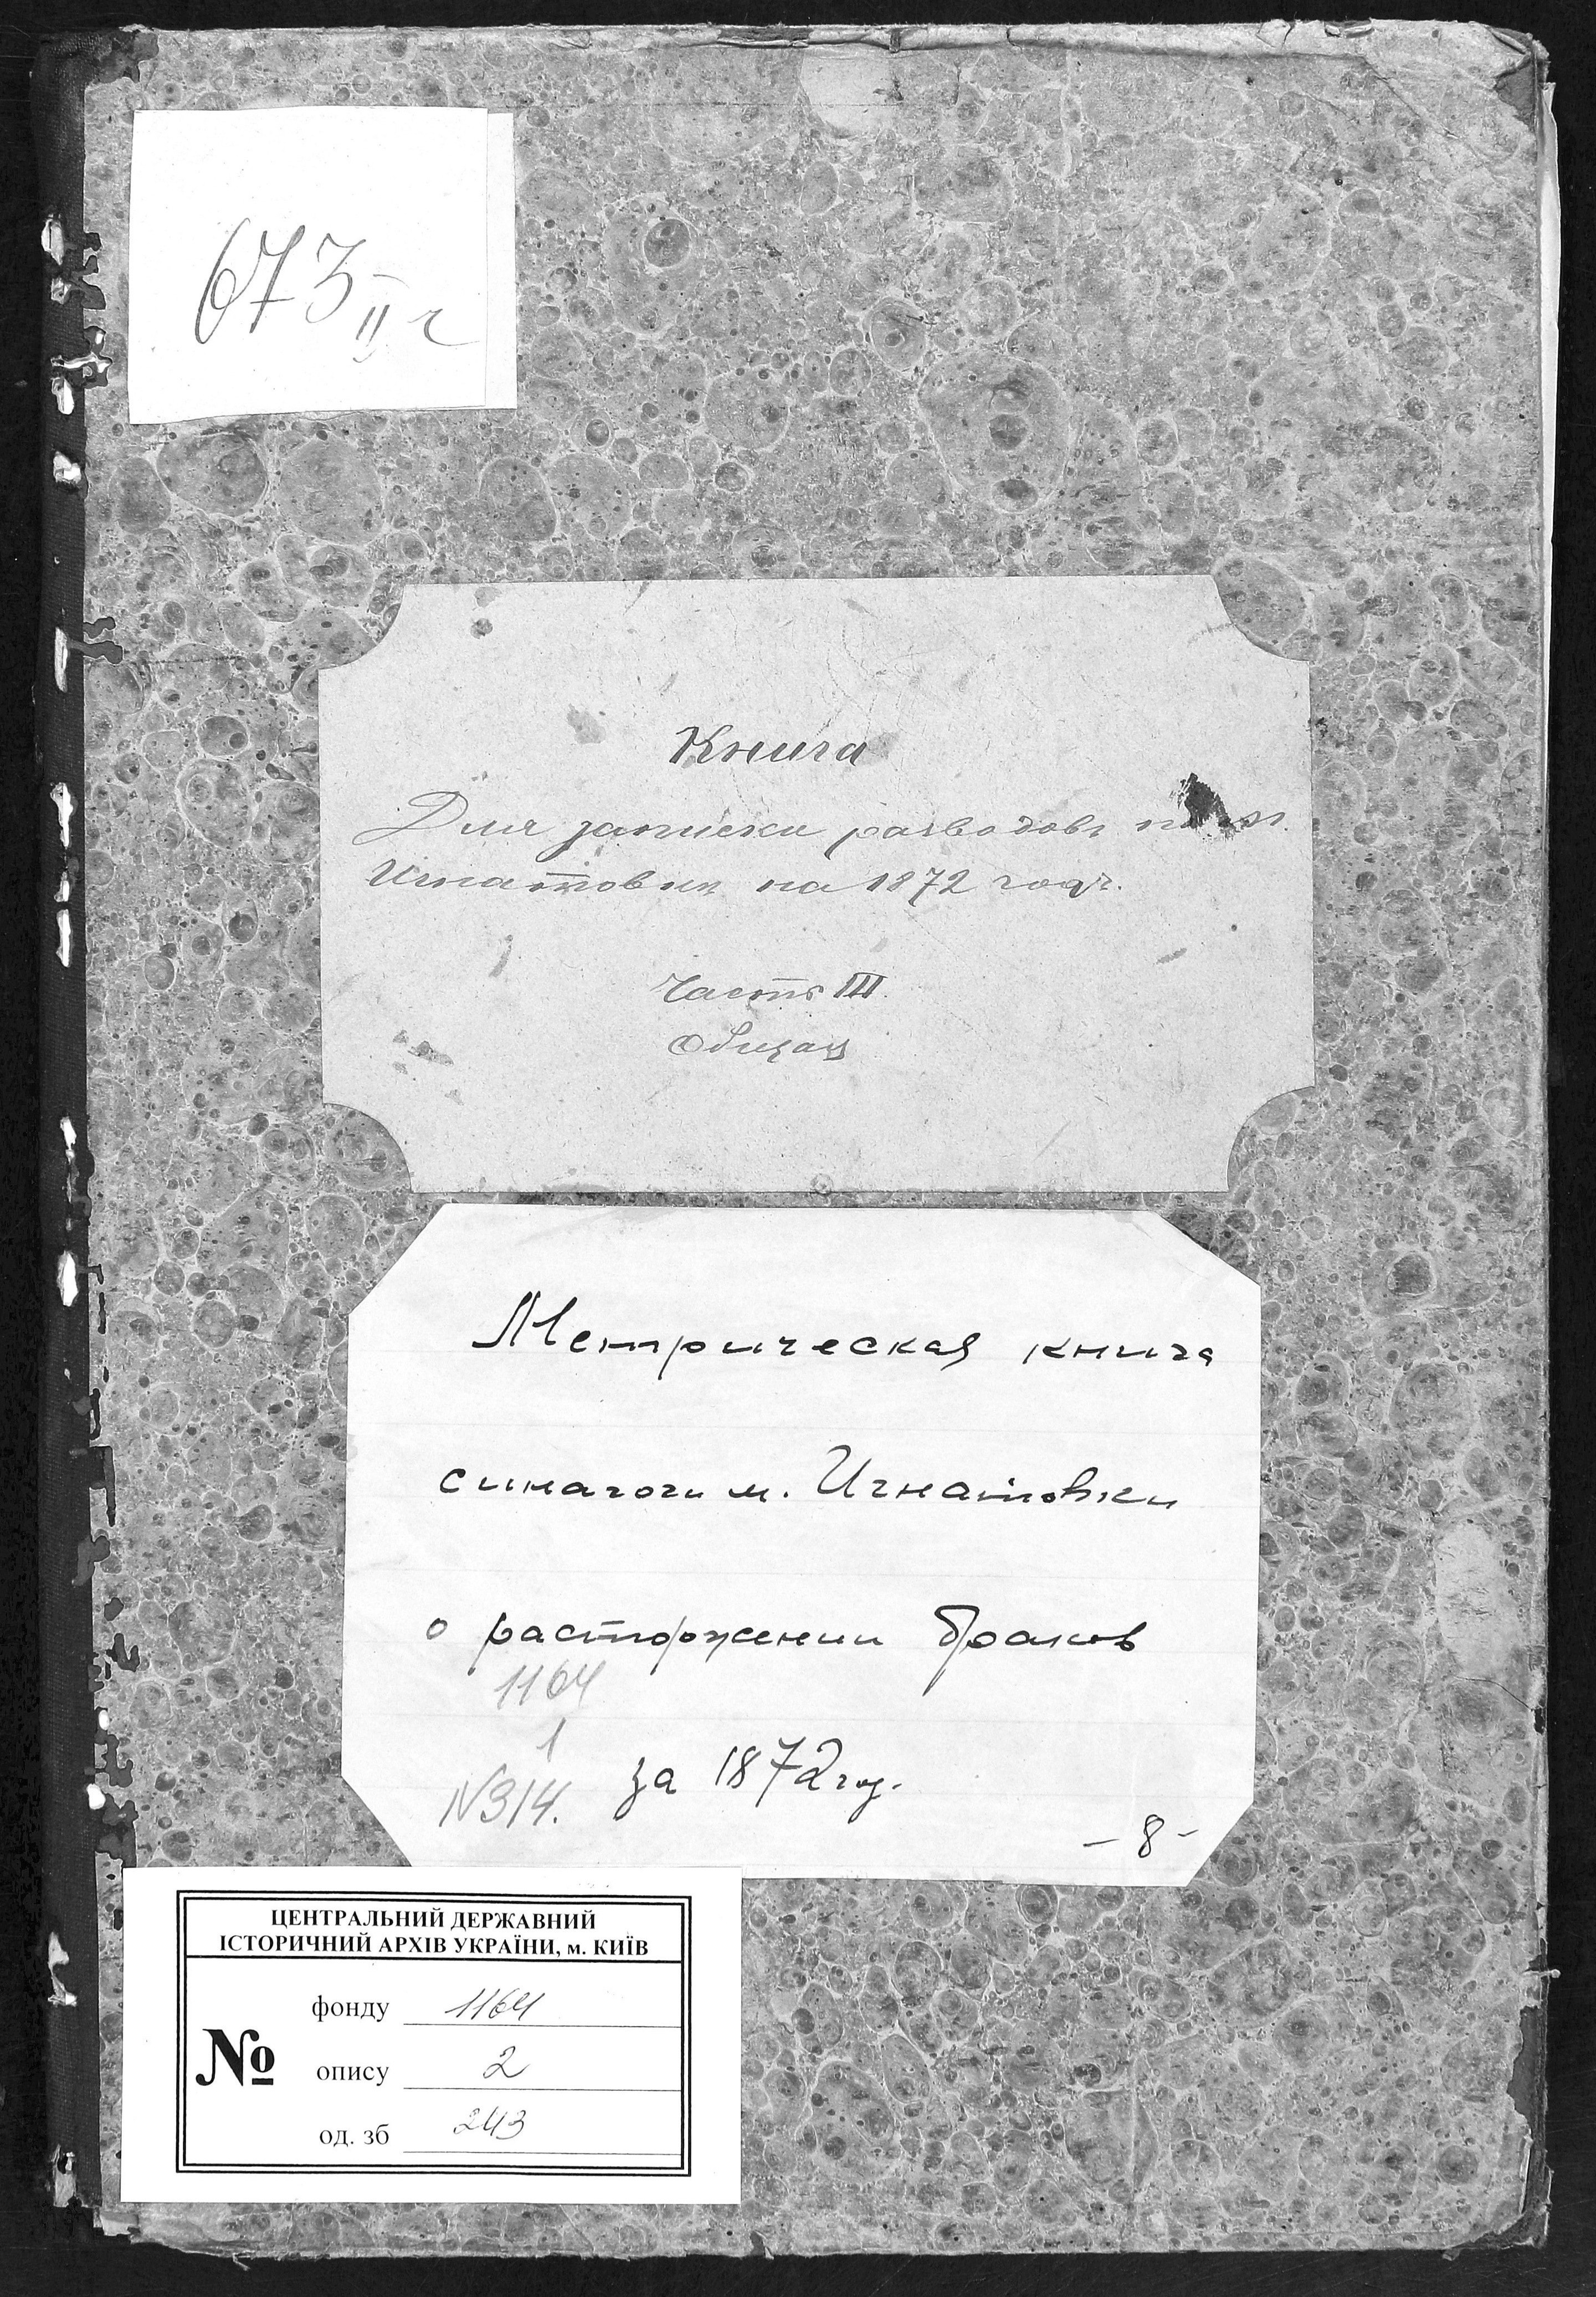 673 II ч
Книга
Для записки разводовъ по м.
Игнатовки на 1872 годъ.
Часть III.
Общая
Метрическая книга
синагоги м. Игнатовки
о расторжении браков
1164
1
№314.
за 1872 год.
- 8 -
ЦЕНТРАЛЬНИЙ ДЕРЖАВНИЙ
ІСТОРИЧНИЙ АРХІВ УКРАЇНИ, м. КИЇВ
№
фонду 1164
опису 2
од. зб 243